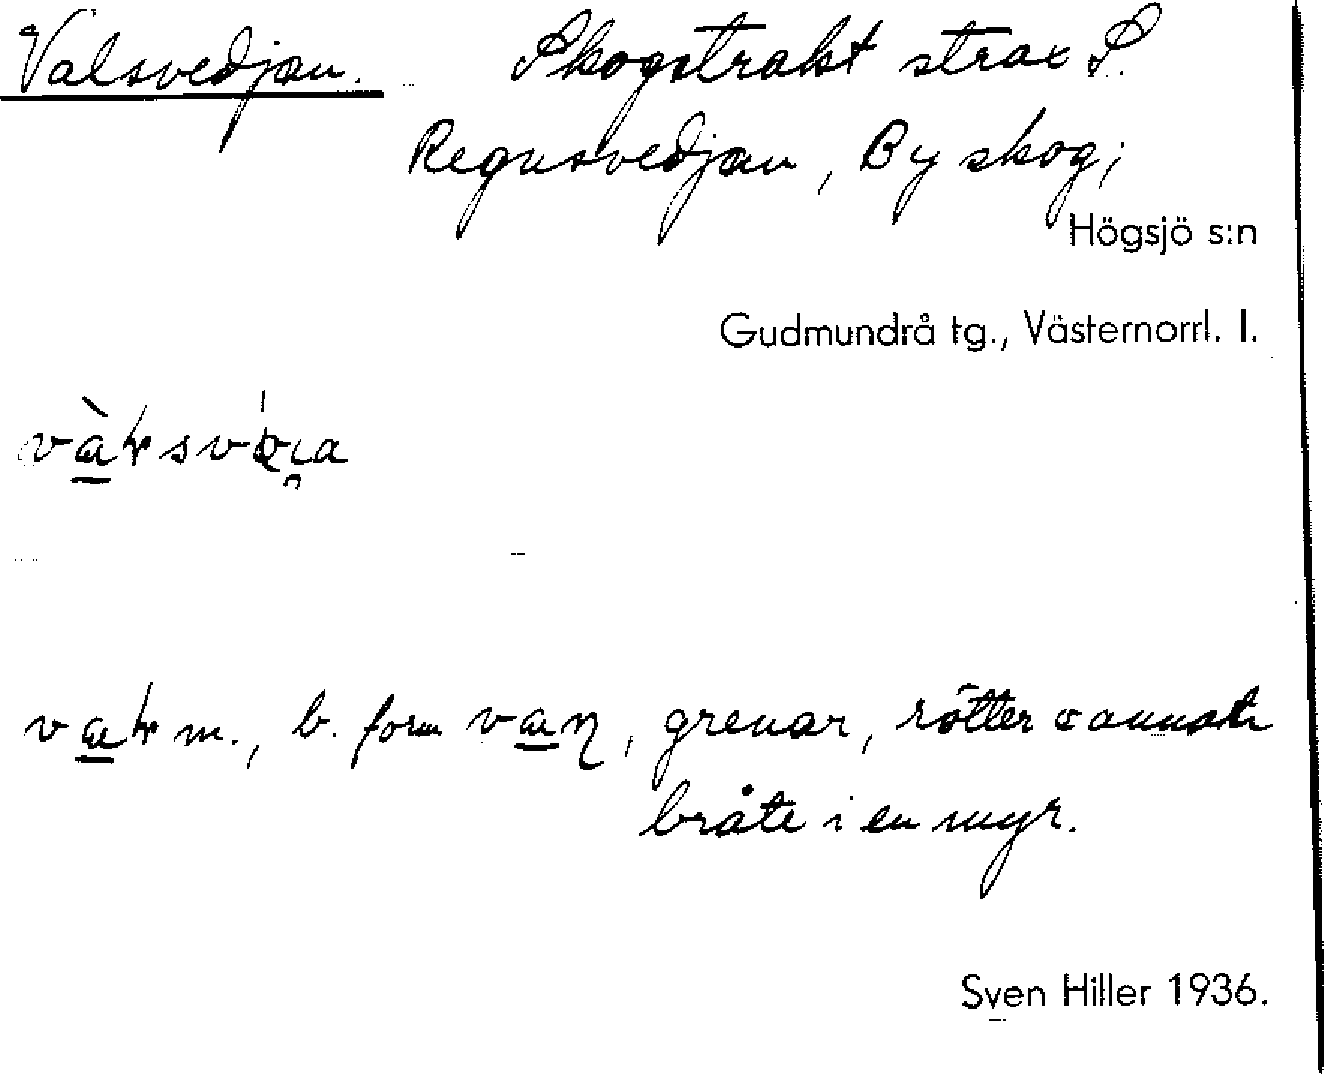 Valsvedjan. Skogstrakt strax S.
Regnsvedjan, By skog;
Högsjö s:n
Gudmundrå tg., Västernorrl. l.
m., b. form grenar, rötter o annat
bråte i en myr.
Sven Hiller 1936.